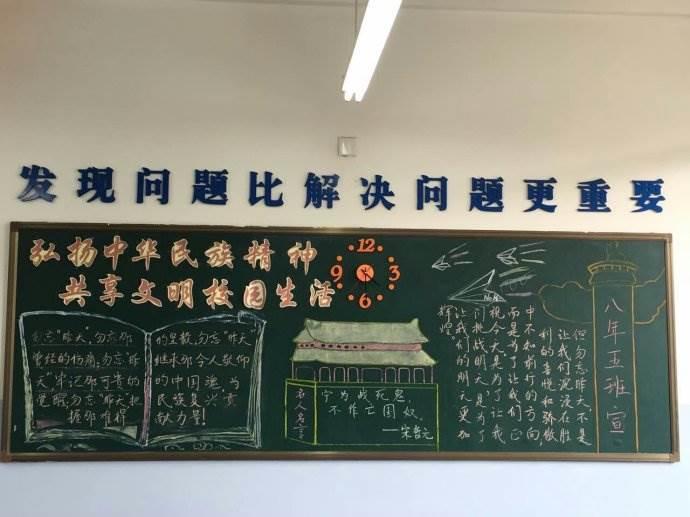 发现问题比解决问题更重要
弘扬中华民族精神
共享文明校园生活
12
9 3
6
勿忘"昨天",勿忘那
曾经的伤痛,勿忘"昨
天"牢记那可贵的
觉醒,勿忘"昨天"把
握那难得
的呈数,勿忘"昨天"
继承那令人敬仰
的中国魂,为
民族复兴贡
献力量!
名人名言
宁为战死鬼,
不作亡国奴。
——宋哲元
但勿忘昨天,不是
让我们沉浸在胜
利的喜悦和骄傲
中不知前行的方向,
而是为了让我们正
视今天是为了让我
们挑战明天是为了
让我们的明天更加
辉煌
八年五班宣